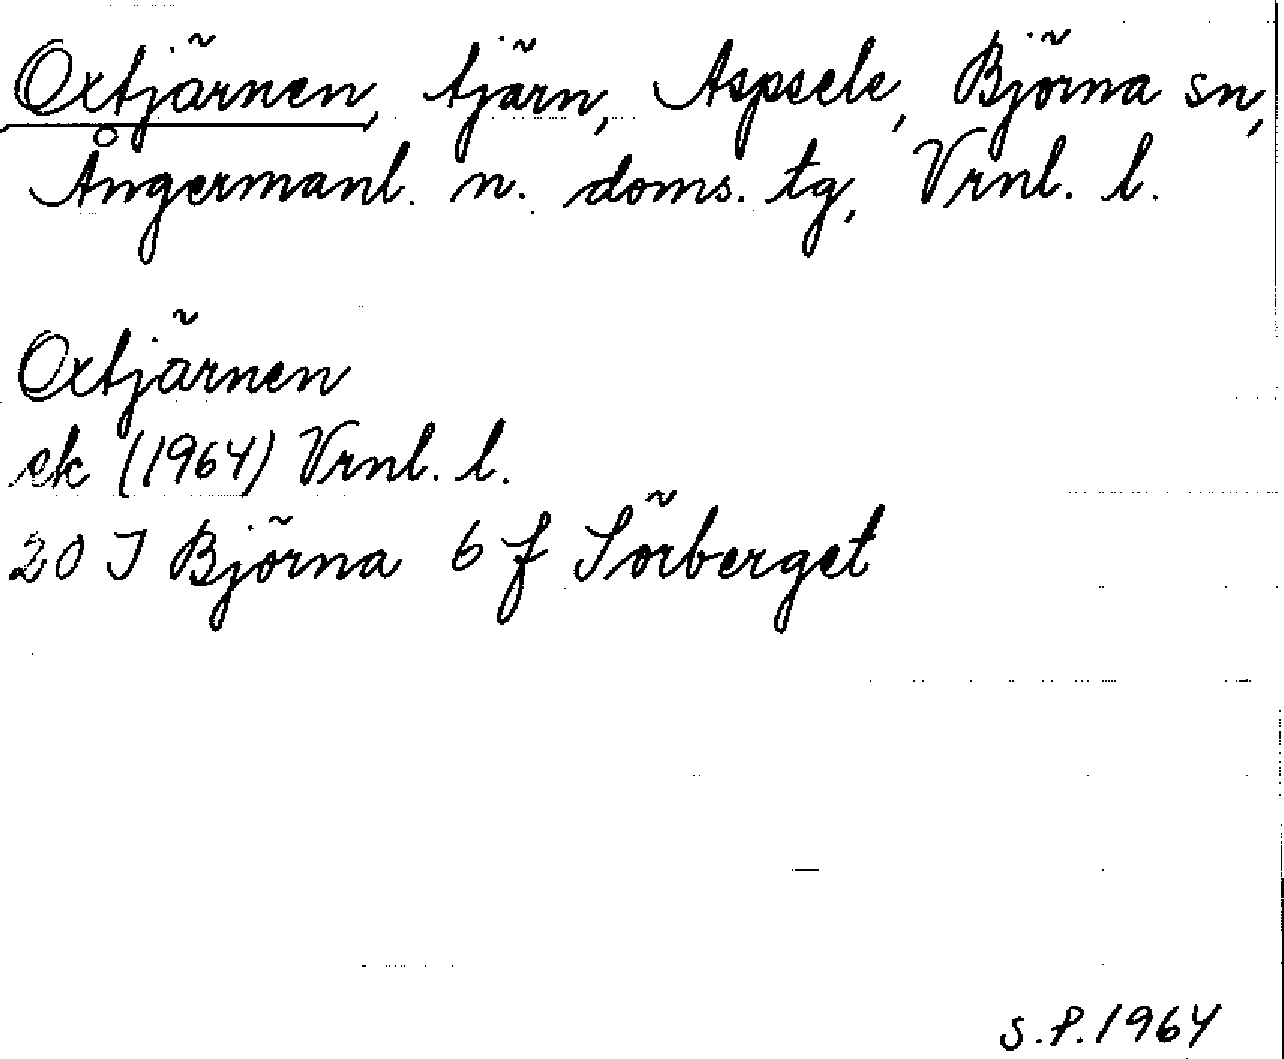 Oxtjärnen, tjärn, Aspsele, Björna sn,
Ångermanl. n. doms. tg, Vrnl. l.
Oxtjärnen
ek (1964) Vrnl. l.
20 J Björna 6 f Sörberget
S.P. 1964